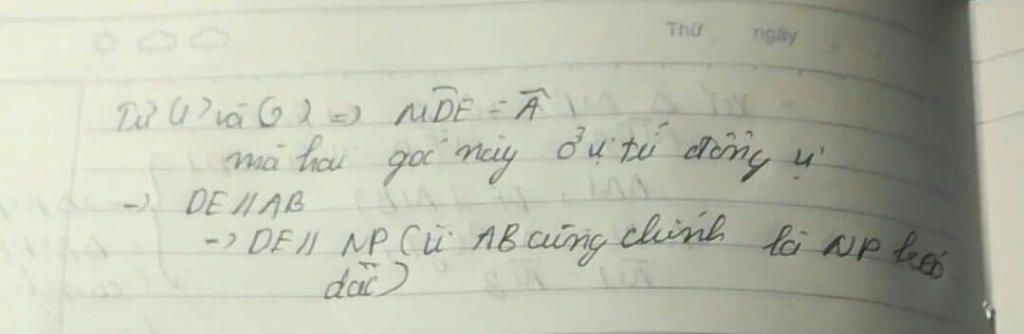 Thứ ngày
Từ (1) và (2) => MDE = A
mà hai góc này ở vị trí đồng vị
-> DE // AB
-> DE // NP (vì AB cũng chính là NP kéo
dài)